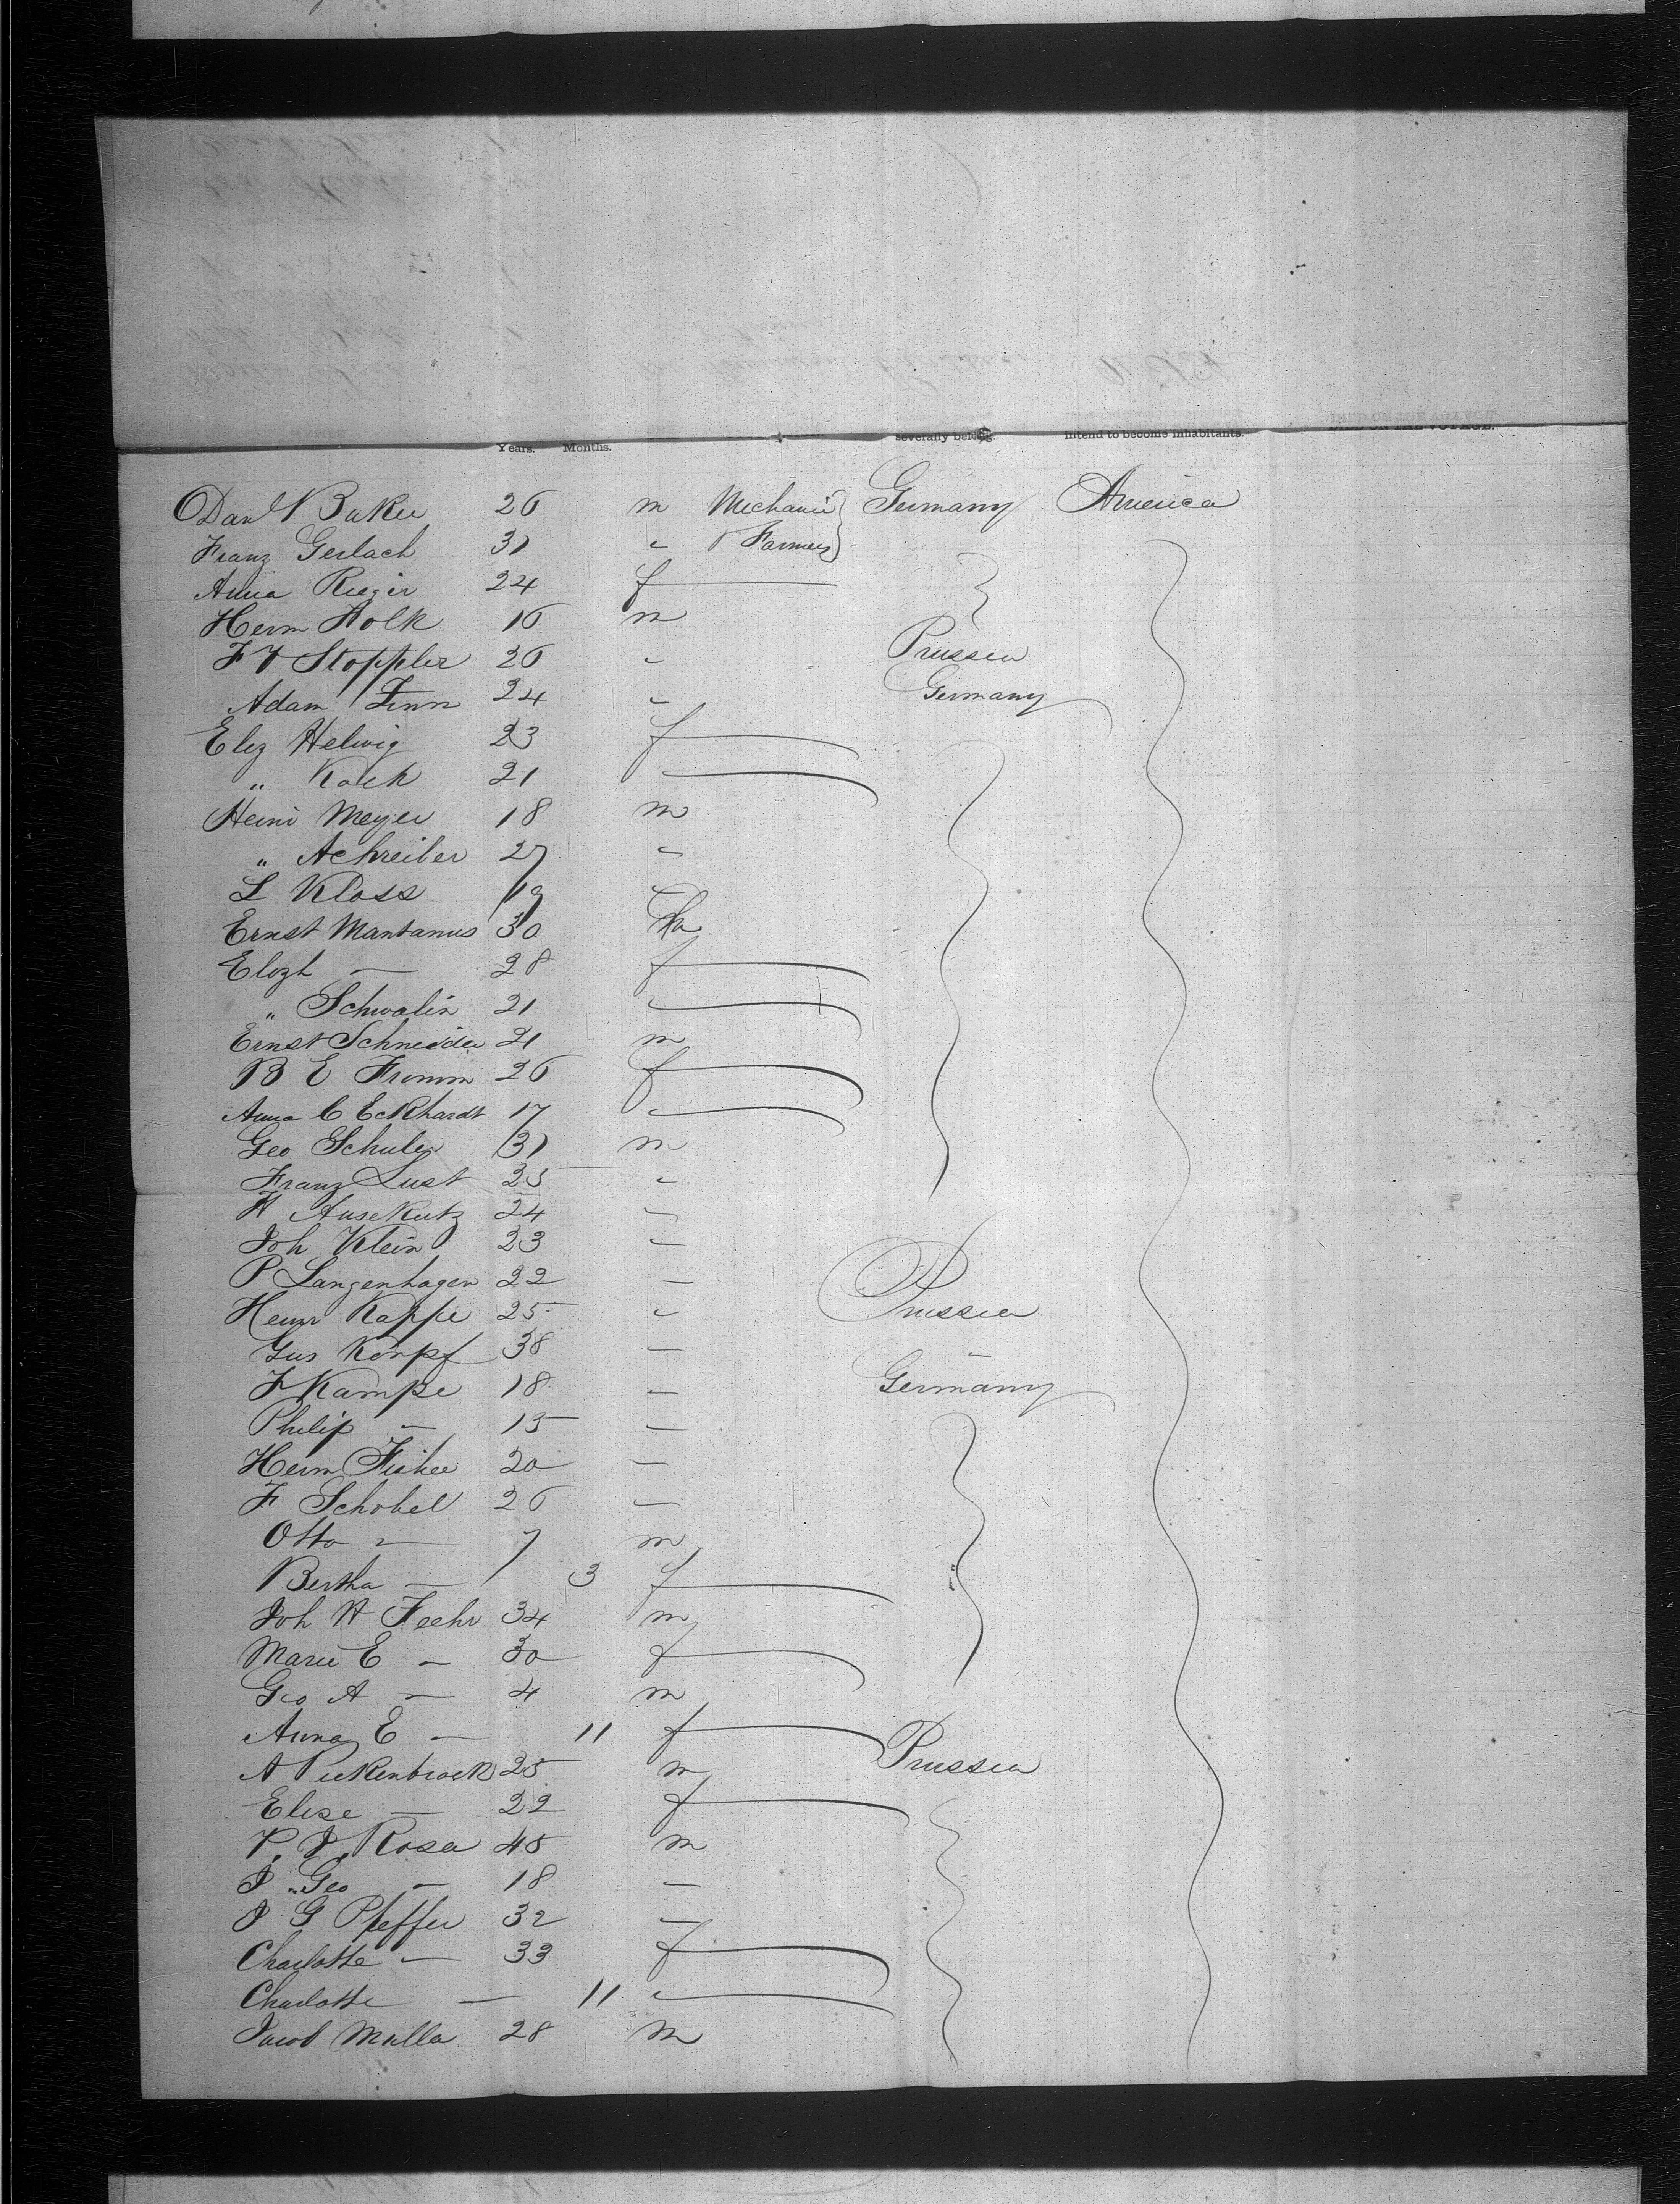 Years. Months. severally belong intend to become inhabitants.
Danl Baker 26 m Mechanic Germany America
Franz Gerlach 31 " & Farmers
Anna Rieger 24 f
Herm Holk 16 m
F V Stoppler 26 " Prussia
Adam Finn 24 " Germany
Eliz Helwig 23 f
" Koch 21
Heinr Meyer 18 m
" Schreiber 27 "
L Kloss 19 "
Ernst Mantanus 30
Elozh — 28 f
" Schwalin 21 "
Ernst Schneider 21 m
B E Fromm 26 f
Anna C Eckhardt 17 "
Geo Schuler 31 m
Franz Lust 25 "
H Ausekutz 24 "
Joh Klein 23 "
P Langenhagen 22 —
Heinr Kappe 25 " Prussia
Gus Kompf 38 —
F Kampe 18 — Germany
Philip — 15 —
Herm Fisher 20 —
F Schobel 26 —
Otto — 7 m
Bertha — 3 f
Joh H Feehr 34 m
Marie E — 30 f
Geo A — 4 m
Anna E — 11 f
A Piekenbrock 25 m Prussia
Elise — 22 f
P. J. Rosa 45 m
J. Geo — 18 —
J G Pfeffer 32 —
Charlotte — 33 f
Charlotte — 11 "
Jacob Mulla 28 m